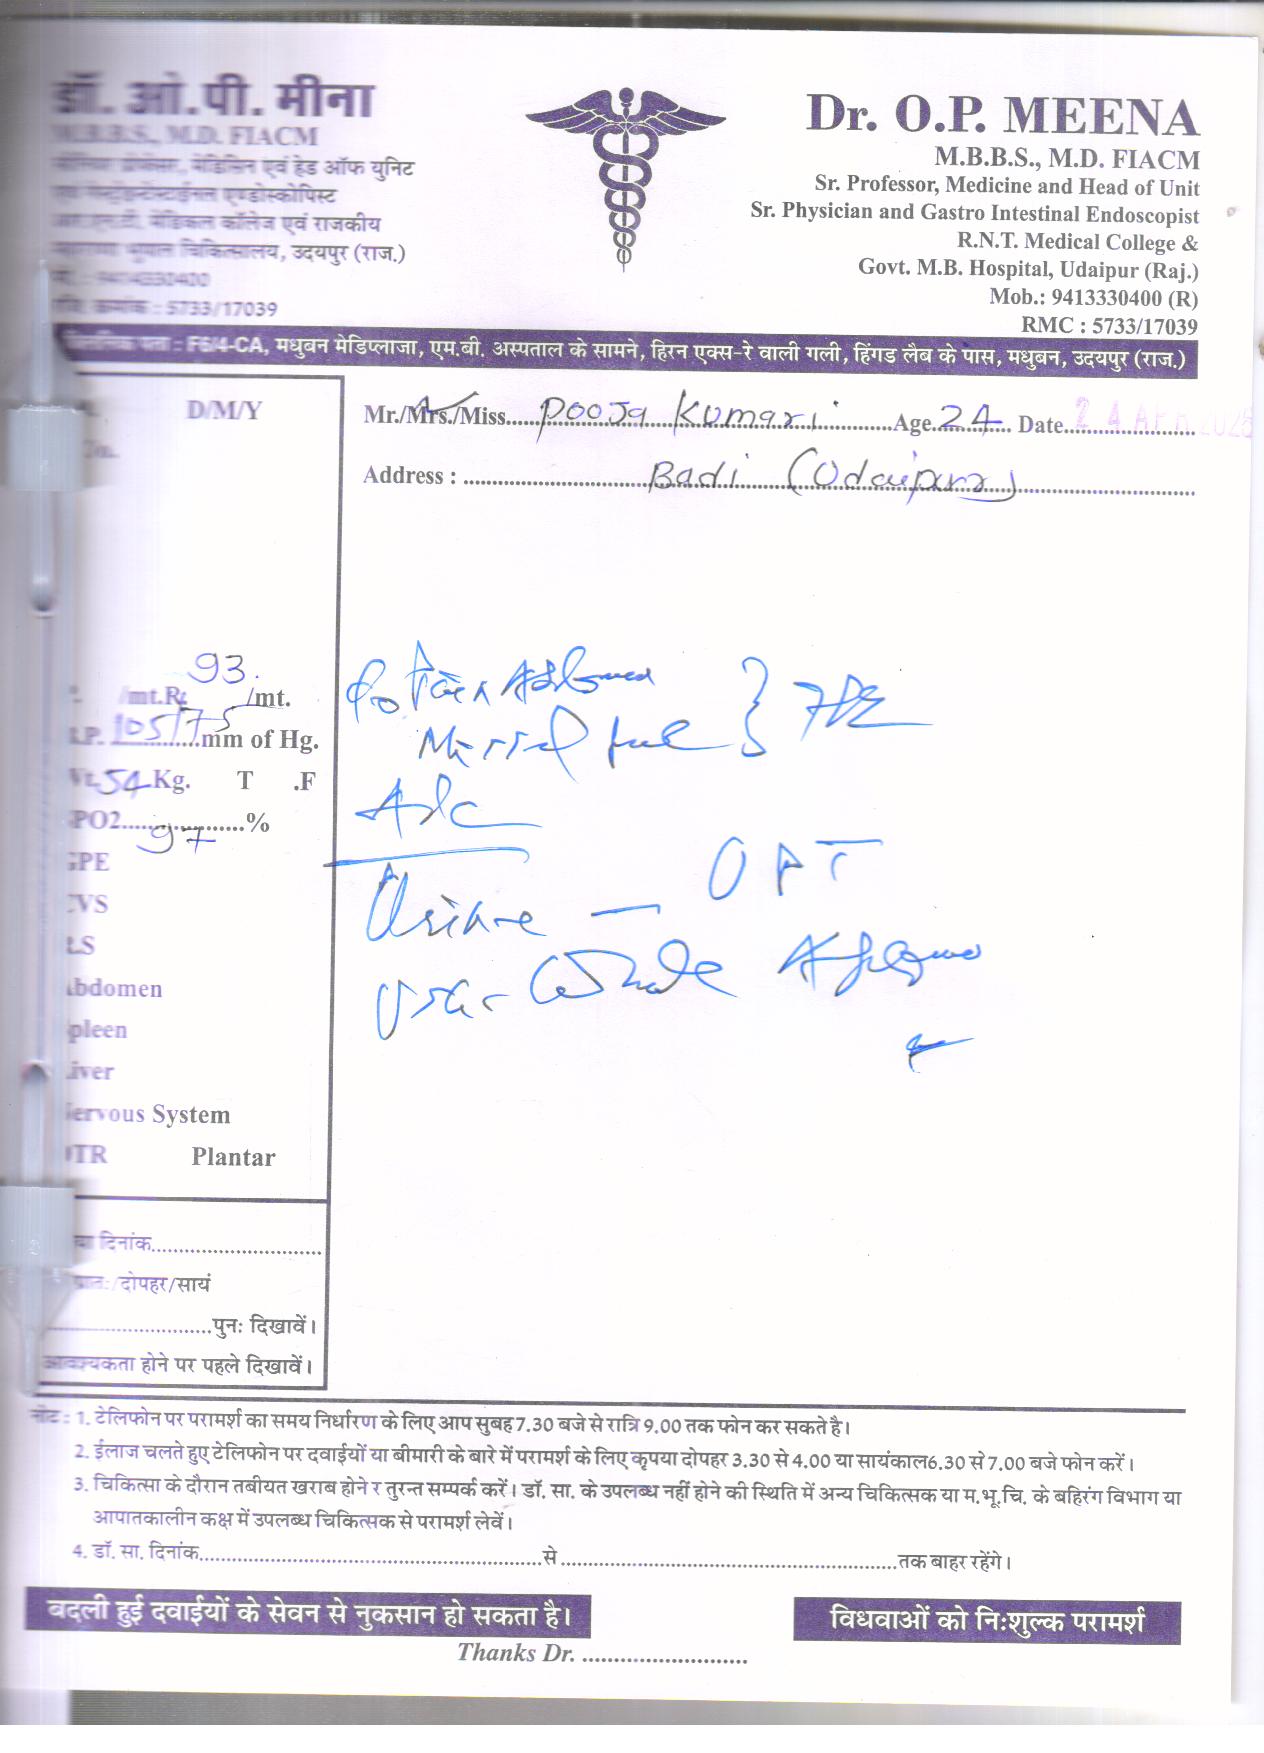 डॉ. ओ.पी. मीना
M.B.B.S., M.D. FIACM
मेडिसिन एवं हेड ऑफ युनिट
एण्डोस्कोपिस्ट
मेडिकल कॉलेज एवं राजकीय
चिकित्सालय, उदयपुर (राज.)
: 5733/17039
Dr. O.P. MEENA
M.B.B.S., M.D. FIACM
Sr. Professor, Medicine and Head of Unit
Sr. Physician and Gastro Intestinal Endoscopist
R.N.T. Medical College &
Govt. M.B. Hospital, Udaipur (Raj.)
Mob.: 9413330400 (R)
RMC : 5733/17039
पता : F6/4-CA, मधुबन मेडिप्लाजा, एम.बी. अस्पताल के सामने, हिरन एक्स-रे वाली गली, हिंगड लैब के पास, मधुबन, उदयपुर (राज.)
D/M/Y
Mr./Mrs./Miss. Pooja Kumari Age 24 Date 24 APR 2025
Address : Badi (Udaipur)
93.
/mt.R. /mt.
105/75 mm of Hg.
54 Kg. T .F
SPO2 97 %
GPE
CVS
Abdomen
Spleen
Liver
Nervous System
DTR Plantar
Pain Abdomen
Missed
Adv
Urine - UPT
Whole Abdomen
दिनांक
प्रातः/दोपहर/सायं
पुनः दिखावें।
आवश्यकता होने पर पहले दिखावें।
नोट : 1. टेलिफोन पर परामर्श का समय निर्धारण के लिए आप सुबह 7.30 बजे से रात्रि 9.00 तक फोन कर सकते है।
2. ईलाज चलते हुए टेलिफोन पर दवाईयों या बीमारी के बारे में परामर्श के लिए कृपया दोपहर 3.30 से 4.00 या सायंकाल 6.30 से 7.00 बजे फोन करें।
3. चिकित्सा के दौरान तबीयत खराब होने र तुरन्त सम्पर्क करें। डॉ. सा. के उपलब्ध नहीं होने की स्थिति में अन्य चिकित्सक या म.भू.चि. के बहिरंग विभाग या
आपातकालीन कक्ष में उपलब्ध चिकित्सक से परामर्श लेवें।
4. डॉ. सा. दिनांक से तक बाहर रहेंगे।
बदली हुई दवाईयों के सेवन से नुकसान हो सकता है।
विधवाओं को निःशुल्क परामर्श
Thanks Dr.